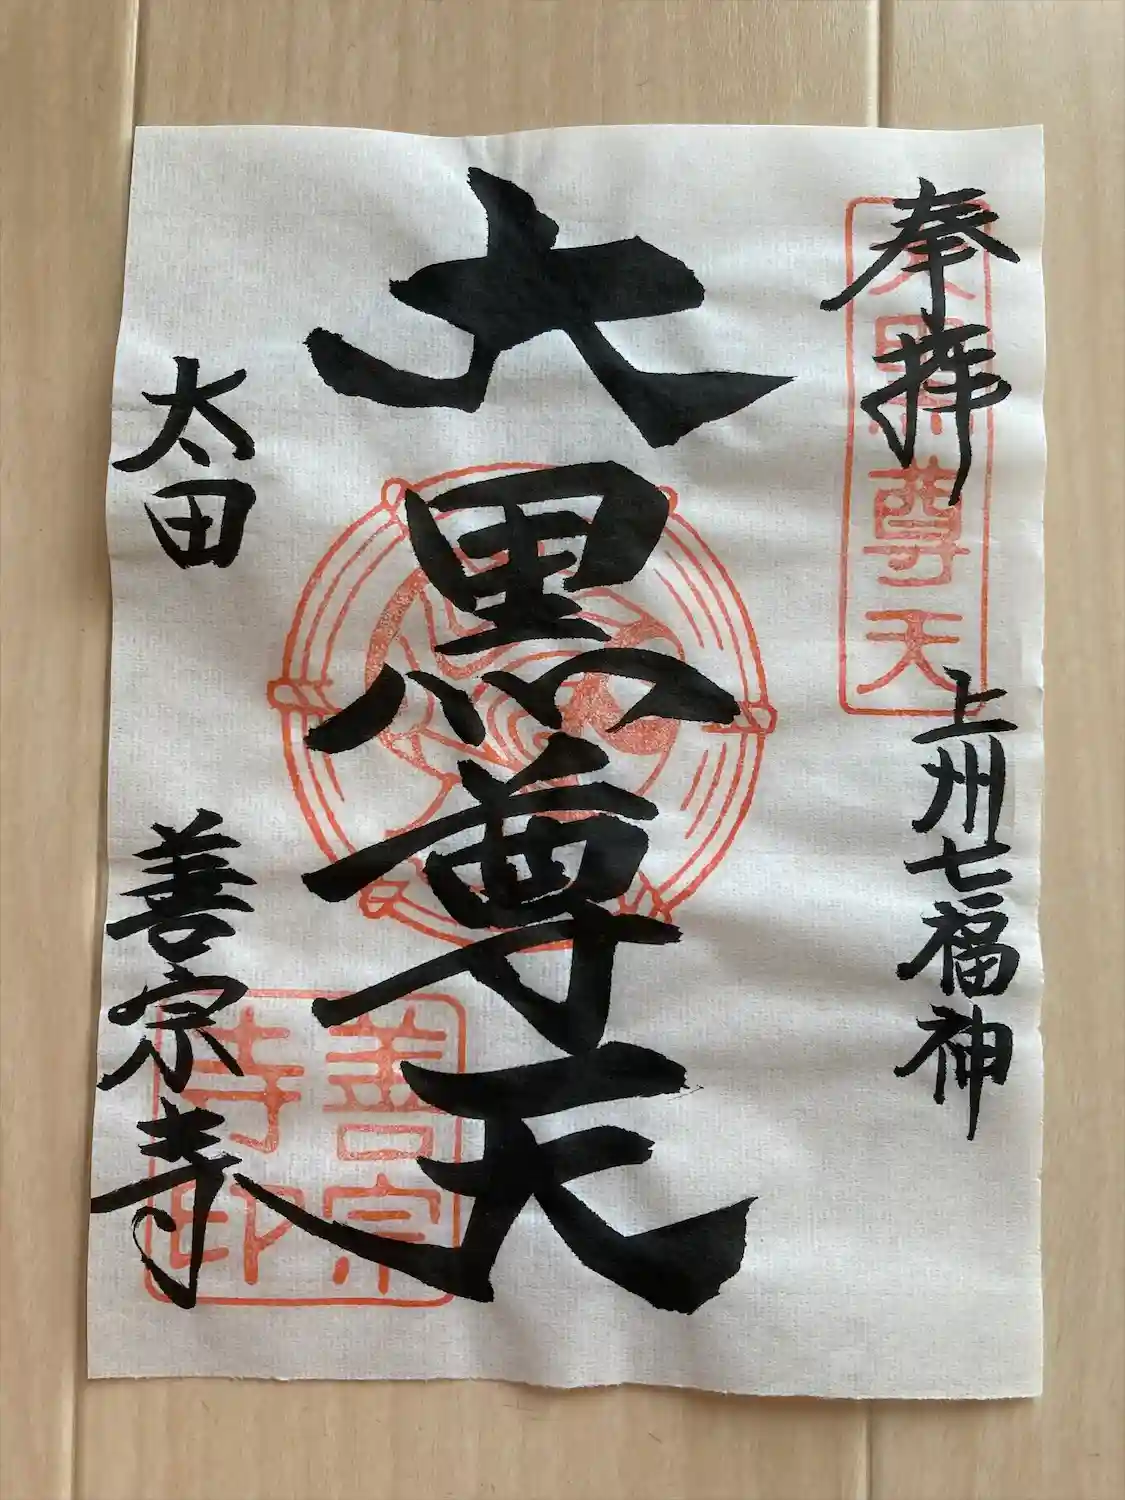 奉拝
上州七福神
大黒尊天
大黒尊天
太田
善宗寺
善宗寺印